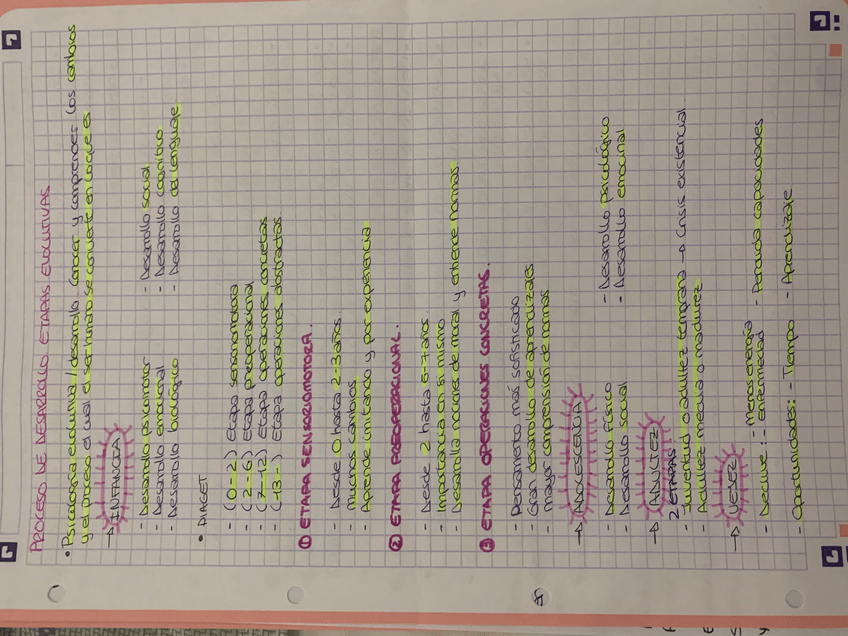 PROCESO DE DESARROLLO. ETAPAS EVOLUTIVAS
• Psicología evolutiva/desarrollo: conocer y comprender los cambios
y el proceso el cual el ser humano se convierte en lo que es
→ INFANCIA
- Desarrollo psicomotor - Desarrollo social
- Desarrollo emocional - Desarrollo cognitivo
- Desarrollo biológico - Desarrollo del lenguaje
• PIAGET
- (0-2) Etapa sensomotora
- (2-6) Etapa preoperacional
- (7-12) Etapa operaciones concretas
- (13-) Etapa operaciones abstractas
① ETAPA SENSORIOMOTORA.
- Desde 0 hasta 2-3 años
- Muchos cambios
- Aprende imitando y por experiencia
② ETAPA PREOPERACIONAL.
- Desde 2 hasta 6-7 años
- Importancia en si mismo
- Desarrolla nociones de moral y entiende normas.
③ ETAPA OPERACIONES CONCRETAS.
- Pensamento más sofisticado
- Gran desarrollo de aprendizajes
- Mayor comprensión de normas
→ ADOLESCENCIA
- Desarrollo físico - Desarrollo psicológico
- Desarrollo social - Desarrollo emocinal
→ ADULTEZ
2 ETAPAS
- Juventud o adultez temprana → Crisis existencial
- Adultez media o madurez
→ VEJEZ
- Declive: - Menos energía - Perdida capacidades
- enfermedad
- Oportunidades: - Tiempo - Aprendizaje